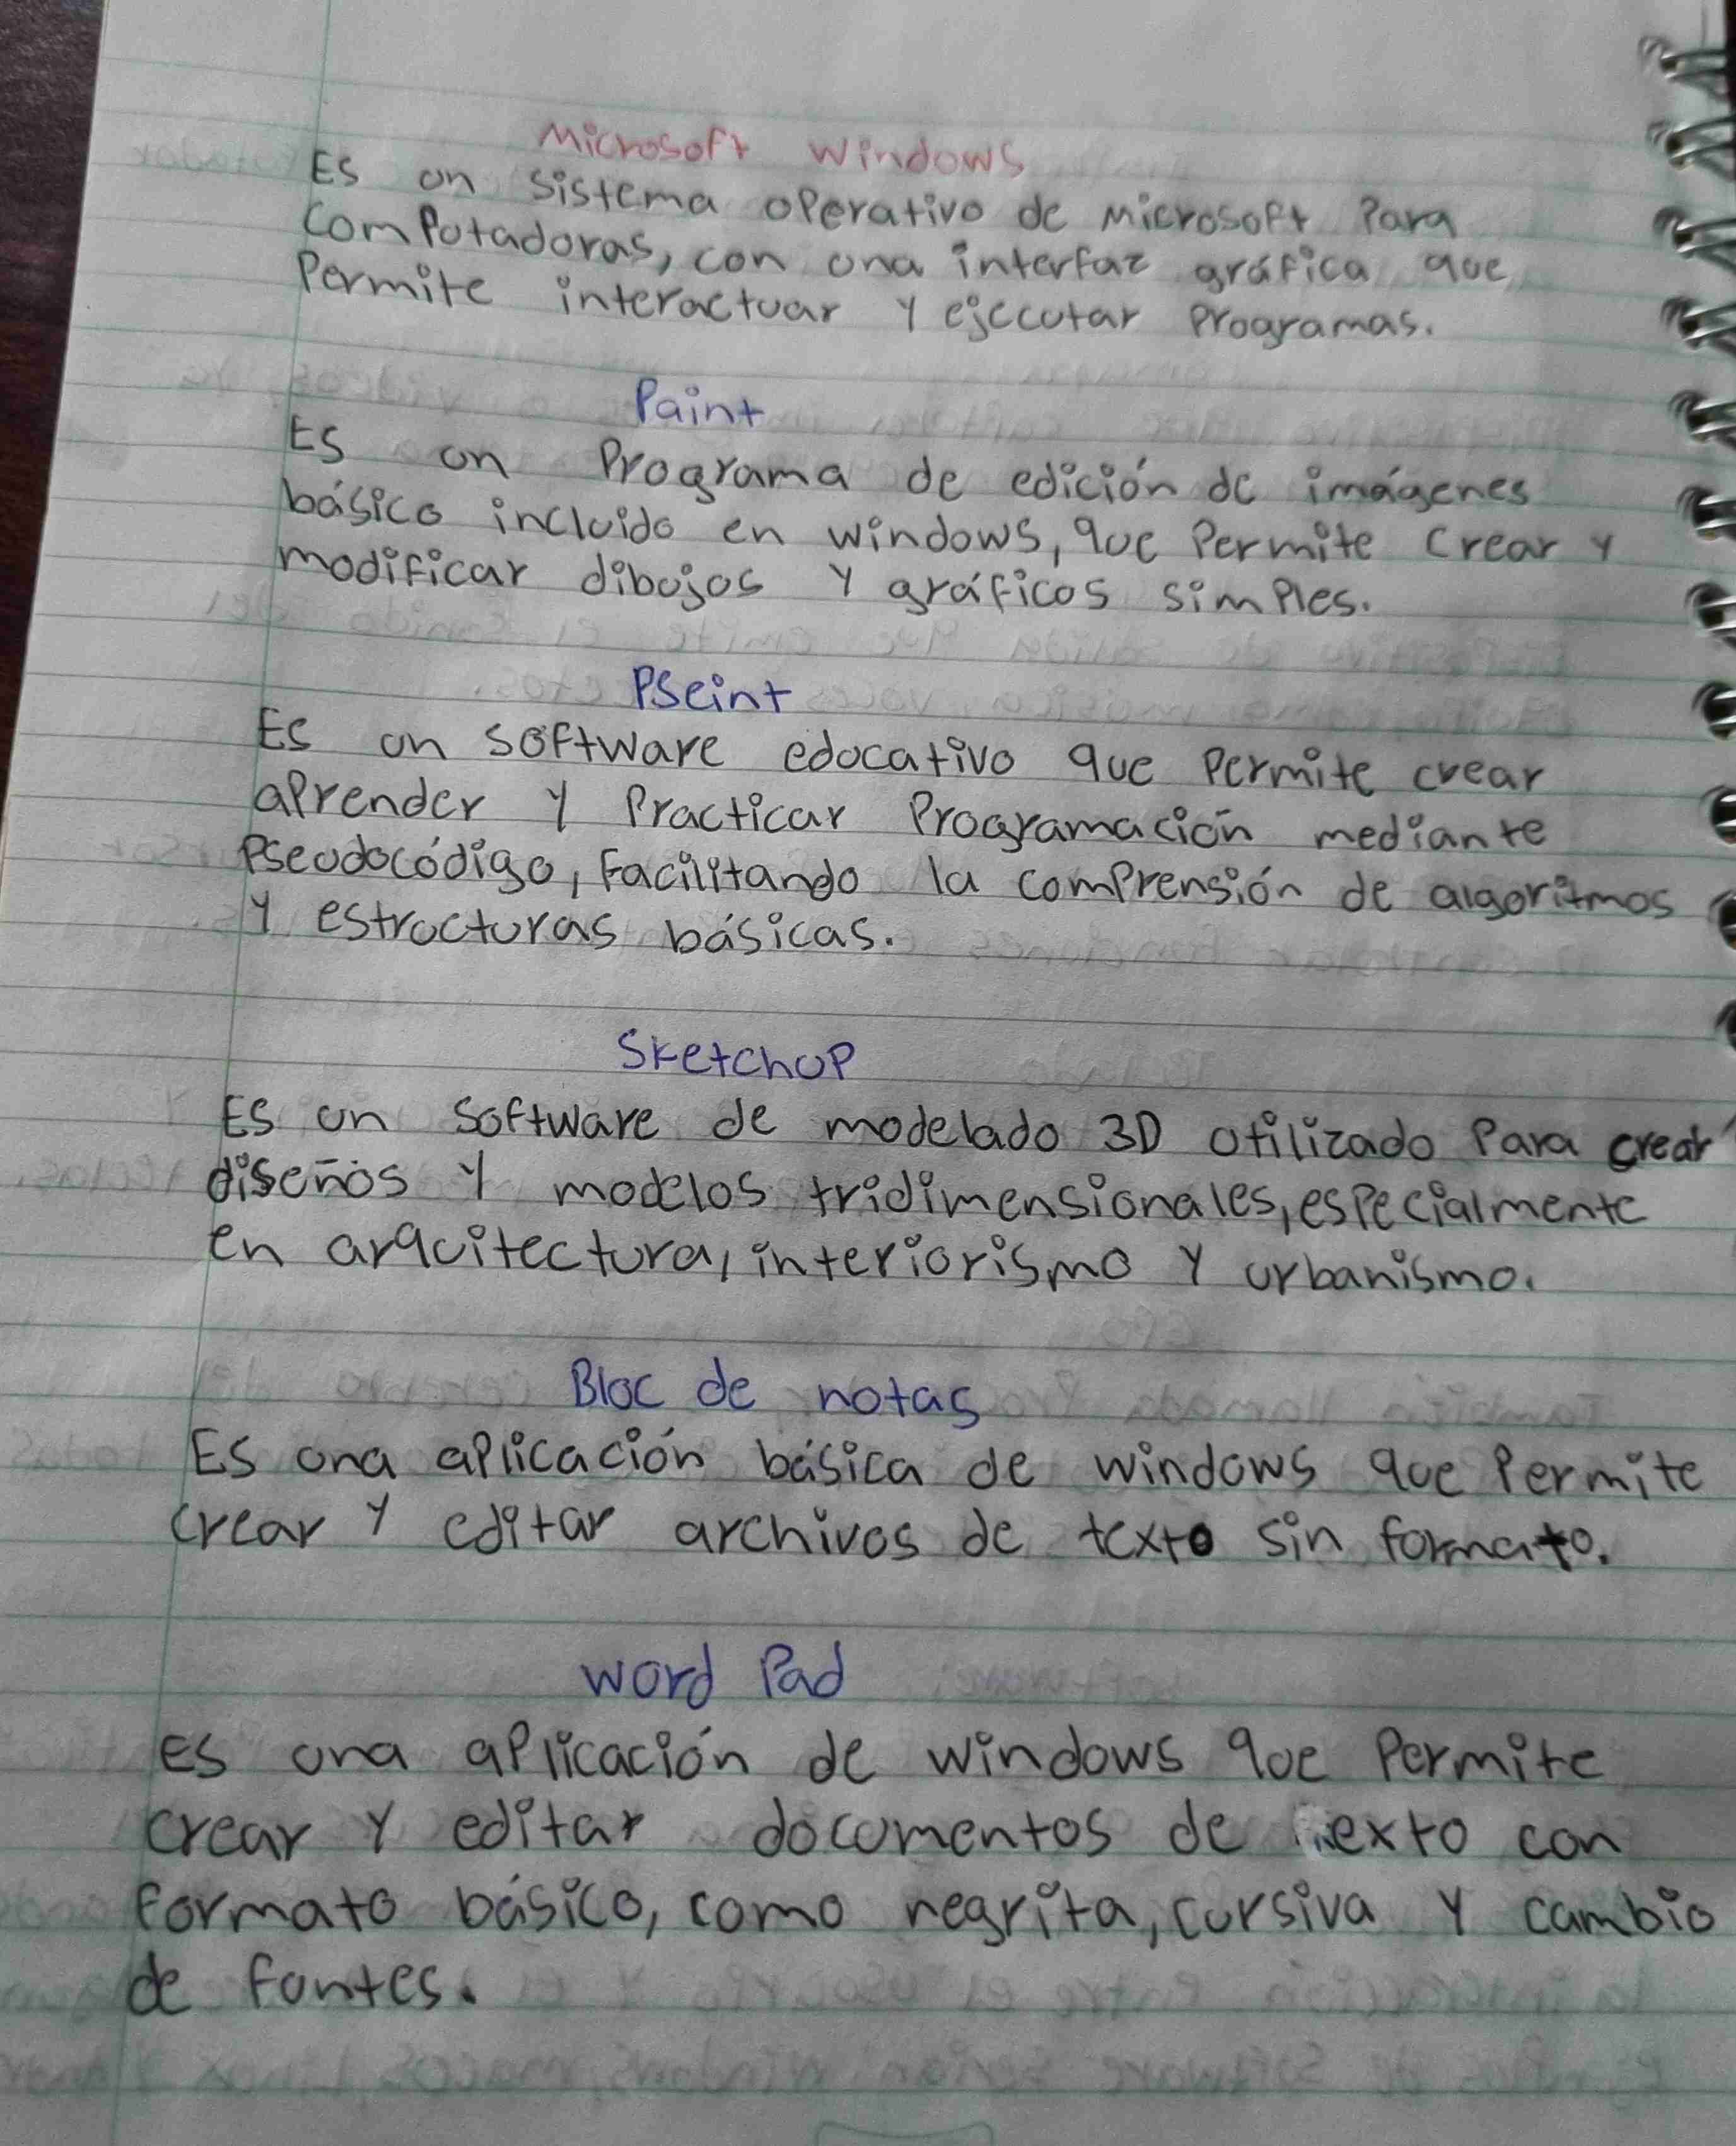 Microsoft Windows
Es un sistema operativo de Microsoft Para
Computadoras, con una interfaz gráfica que
Permite interactuar y ejecutar Programas.
Paint
Es un Programa de edición de imágenes
básico incluido en windows, que Permite crear y
modificar dibujos y gráficos simples.
PSeint
Es un software educativo que Permite crear
aprender y Practicar Programación mediante
Pseudocódigo, Facilitando la comprensión de algoritmos
y estructuras básicas.
SketchUP
Es un software de modelado 3D utilizado Para crear
diseños y modelos tridimensionales, especialmente
en arquitectura, interiorismo y urbanismo.
Bloc de notas
Es una aplicación básica de windows que Permite
crear y editar archivos de texto sin formato.
word Pad
Es una aplicación de windows que Permite
crear y editar documentos de texto con
Formato básico, como negrita, cursiva y cambio
de Fontes.